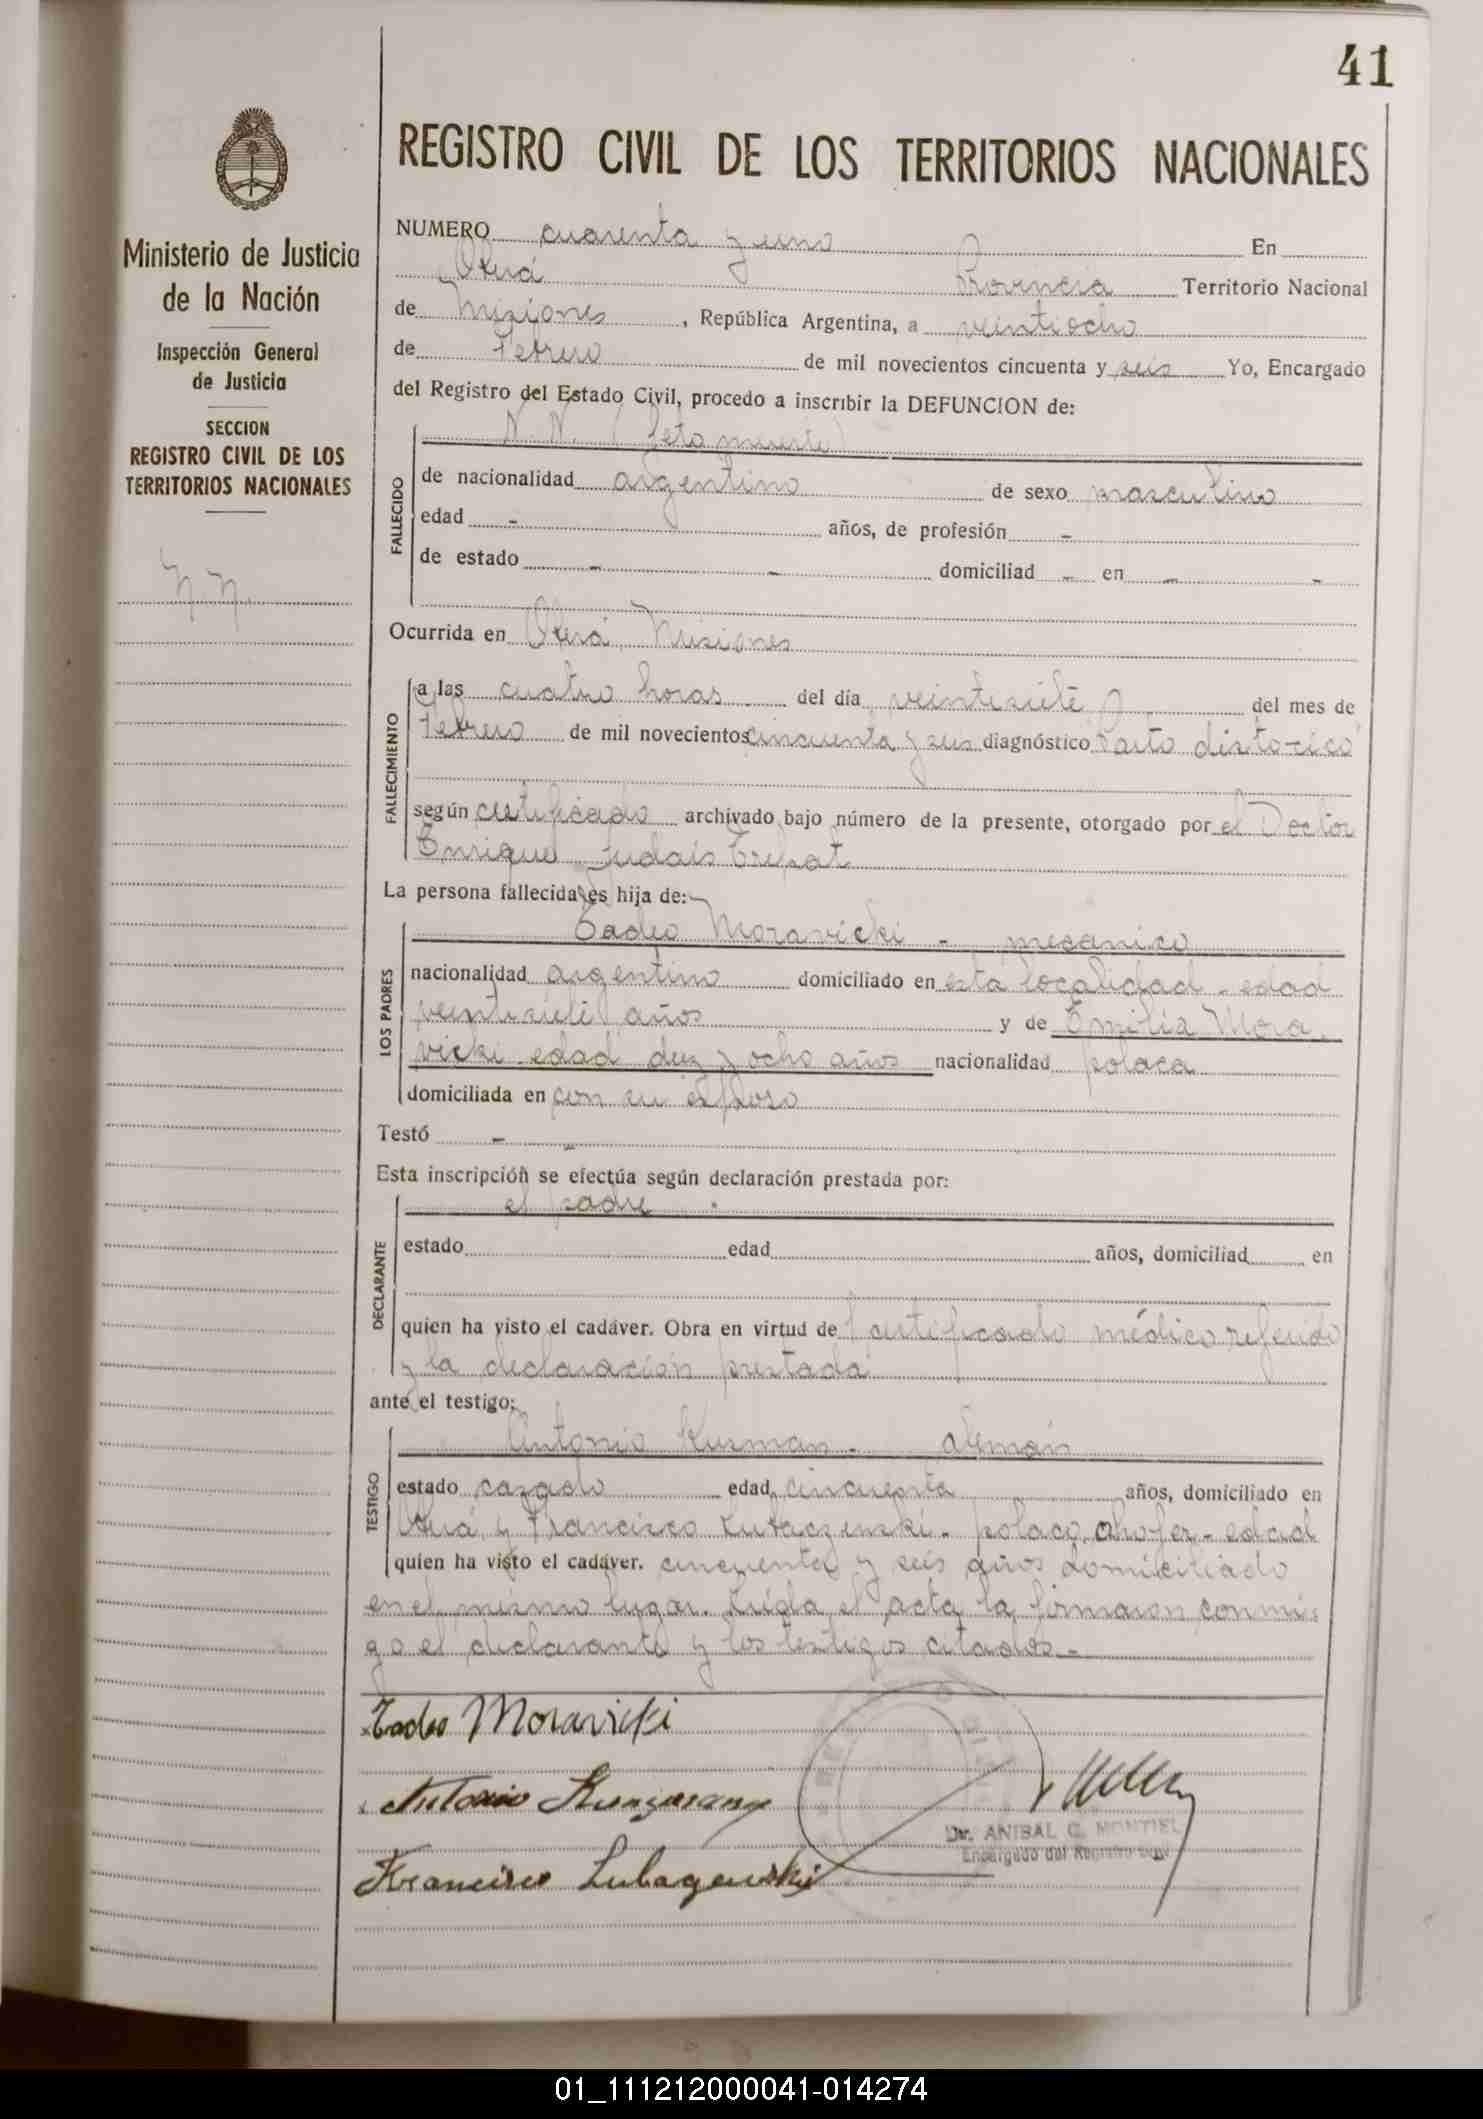 41
REGISTRO CIVIL DE LOS TERRITORIOS NACIONALES
Ministerio de Justicia
de la Nación
Inspección General
de Justicia
SECCION
REGISTRO CIVIL DE LOS
TERRITORIOS NACIONALES
N.N.
NUMERO cuarenta y uno En
Oberá Provincia Territorio Nacional
de Misiones, República Argentina, a veintiocho
de Febrero de mil novecientos cincuenta y seis Yo, Encargado
del Registro del Estado Civil, procedo a inscribir la DEFUNCION de:
N. N. (feto muerto)
FALLECIDO
de nacionalidad argentino de sexo masculino
edad - años, de profesión -
de estado - - domiciliad - en - -
Ocurrida en Oberá, Misiones
FALLECIMIENTO
a las cuatro horas del día veintisiete del mes de
Febrero de mil novecientos cincuenta y seis diagnóstico Parto distocico
según certificado archivado bajo número de la presente, otorgado por el Doctor
Enrique
La persona fallecida es hija de:
LOS PADRES
Tadeo Moravicki - mecanico
nacionalidad argentino domiciliado en esta localidad - edad
veintisiete años y de Emilia Mora
vicki edad diez y ocho años nacionalidad polaca
domiciliada en con su esposo
Testó - -
Esta inscripción se efectúa según declaración prestada por:
DECLARANTE
el padre .
estado edad años, domiciliad en
quien ha visto el cadáver. Obra en virtud del certificado médico referido
y la declaración prestada
ante el testigo:
TESTIGO
Antonio Kusman - aleman
estado casado edad cincuenta años, domiciliado en
Oberá y Francisco - polaco, chofer - edad
quien ha visto el cadáver. cincuenta y seis años domiciliado
en el mismo lugar. Leida el acta la firmaron conmi-
go el declarante y los testigos citados -
Tadeo Moravicki
Antonio
Francisco
Dr. ANIBAL C. MONTIEL
Encargado del Registro Civil
01_111212000041-014274